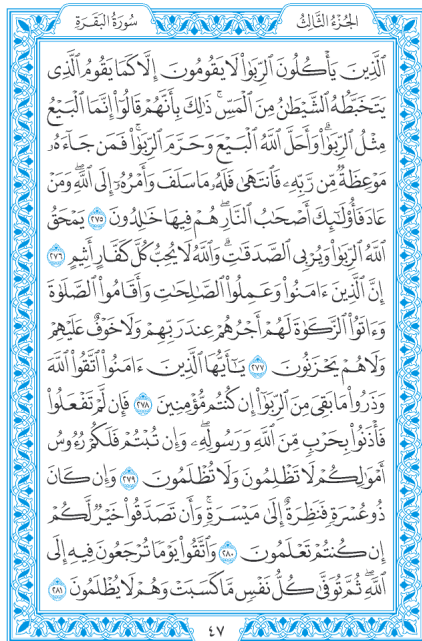 الجُزْءُ الثَّالِثُ سُورَةُ البَقَرَةِ
ٱلَّذِينَ يَأۡكُلُونَ ٱلرِّبَوٰاْ لَا يَقُومُونَ إِلَّا كَمَا يَقُومُ ٱلَّذِي
يَتَخَبَّطُهُ ٱلشَّيۡطَٰنُ مِنَ ٱلۡمَسِّۚ ذَٰلِكَ بِأَنَّهُمۡ قَالُوٓاْ إِنَّمَا ٱلۡبَيۡعُ
مِثۡلُ ٱلرِّبَوٰاْۗ وَأَحَلَّ ٱللَّهُ ٱلۡبَيۡعَ وَحَرَّمَ ٱلرِّبَوٰاْۚ فَمَن جَآءَهُۥ
مَوۡعِظَةٞ مِّن رَّبِّهِۦ فَٱنتَهَىٰ فَلَهُۥ مَا سَلَفَ وَأَمۡرُهُۥٓ إِلَى ٱللَّهِۖ وَمَنۡ
عَادَ فَأُوْلَٰٓئِكَ أَصۡحَٰبُ ٱلنَّارِۖ هُمۡ فِيهَا خَٰلِدُونَ ٢٧٥ يَمۡحَقُ
ٱللَّهُ ٱلرِّبَوٰاْ وَيُرۡبِي ٱلصَّدَقَٰتِۗ وَٱللَّهُ لَا يُحِبُّ كُلَّ كَفَّارٍ أَثِيمٍ ٢٧٦
إِنَّ ٱلَّذِينَ ءَامَنُواْ وَعَمِلُواْ ٱلصَّٰلِحَٰتِ وَأَقَامُواْ ٱلصَّلَوٰةَ
وَءَاتَوُاْ ٱلزَّكَوٰةَ لَهُمۡ أَجۡرُهُمۡ عِندَ رَبِّهِمۡ وَلَا خَوۡفٌ عَلَيۡهِمۡ
وَلَا هُمۡ يَحۡزَنُونَ ٢٧٧ يَٰٓأَيُّهَا ٱلَّذِينَ ءَامَنُواْ ٱتَّقُواْ ٱللَّهَ
وَذَرُواْ مَا بَقِيَ مِنَ ٱلرِّبَوٰٓاْ إِن كُنتُم مُّؤۡمِنِينَ ٢٧٨ فَإِن لَّمۡ تَفۡعَلُواْ
فَأۡذَنُواْ بِحَرۡبٖ مِّنَ ٱللَّهِ وَرَسُولِهِۦۖ وَإِن تُبۡتُمۡ فَلَكُمۡ رُءُوسُ
أَمۡوَٰلِكُمۡ لَا تَظۡلِمُونَ وَلَا تُظۡلَمُونَ ٢٧٩ وَإِن كَانَ
ذُو عُسۡرَةٖ فَنَظِرَةٌ إِلَىٰ مَيۡسَرَةٖۚ وَأَن تَصَدَّقُواْ خَيۡرٞ لَّكُمۡ
إِن كُنتُمۡ تَعۡلَمُونَ ٢٨٠ وَٱتَّقُواْ يَوۡمٗا تُرۡجَعُونَ فِيهِ إِلَى
ٱللَّهِۖ ثُمَّ تُوَفَّىٰ كُلُّ نَفۡسٖ مَّا كَسَبَتۡ وَهُمۡ لَا يُظۡلَمُونَ ٢٨١
٤٧